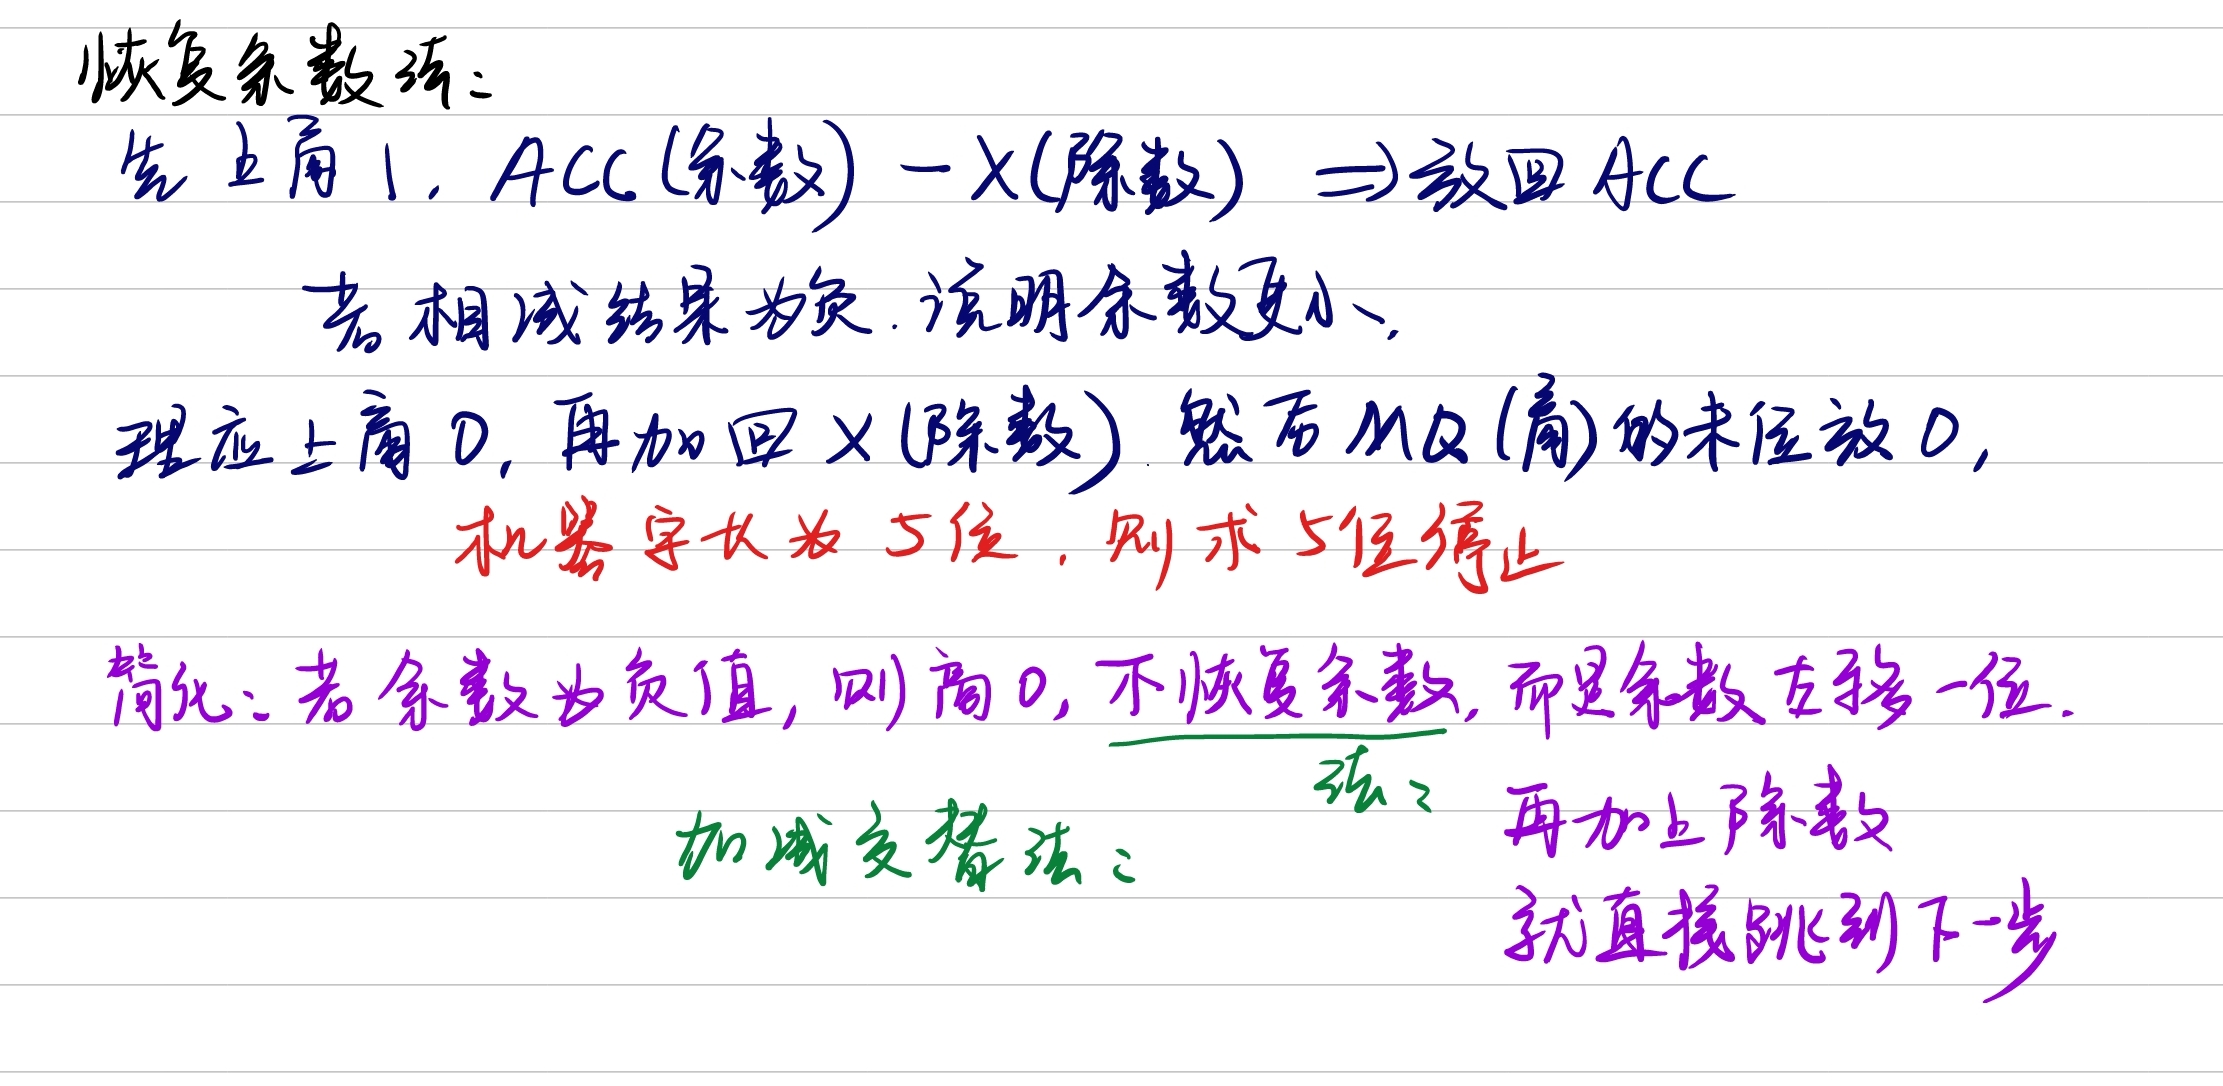 恢复余数法:
先上商1, ACC(余数) - X(除数) ⇒放回ACC
若相减结果为负.说明余数更小,
理应上商0,再加回X(除数).然后MQ(商)的末位放0,
机器字长为5位,则求5位停止
简化:若余数为负值,则商0,不恢复余数,而是余数左移一位.
法:
再加上除数
加减交替法:
就直接跳到下一步